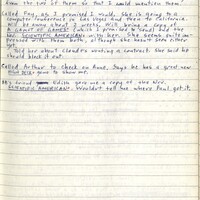 from the two of them so that I would mention them?
Called Fay, as I promised I would. She is going to a
computer conference in Las Vegas and then to California.
Will be away about 2 weeks. Will bring a copy of
A GAMUT OF GAMES (which I promised to send) and the
Nov. SCIENTIFIC AMERICAN with her. She seems quite im-
pressed with them both, although she hasn't seen either
yet.
Told her about Claude's wanting a contract. She said he
should block it out.
Called Arthur to check on Anne. Says he has a great new
disk to give to show me.
My friend Edith gave me a copy of the Nov.
SCIENTIFIC AMERICAN. Wouldn't tell me where Paul got it.